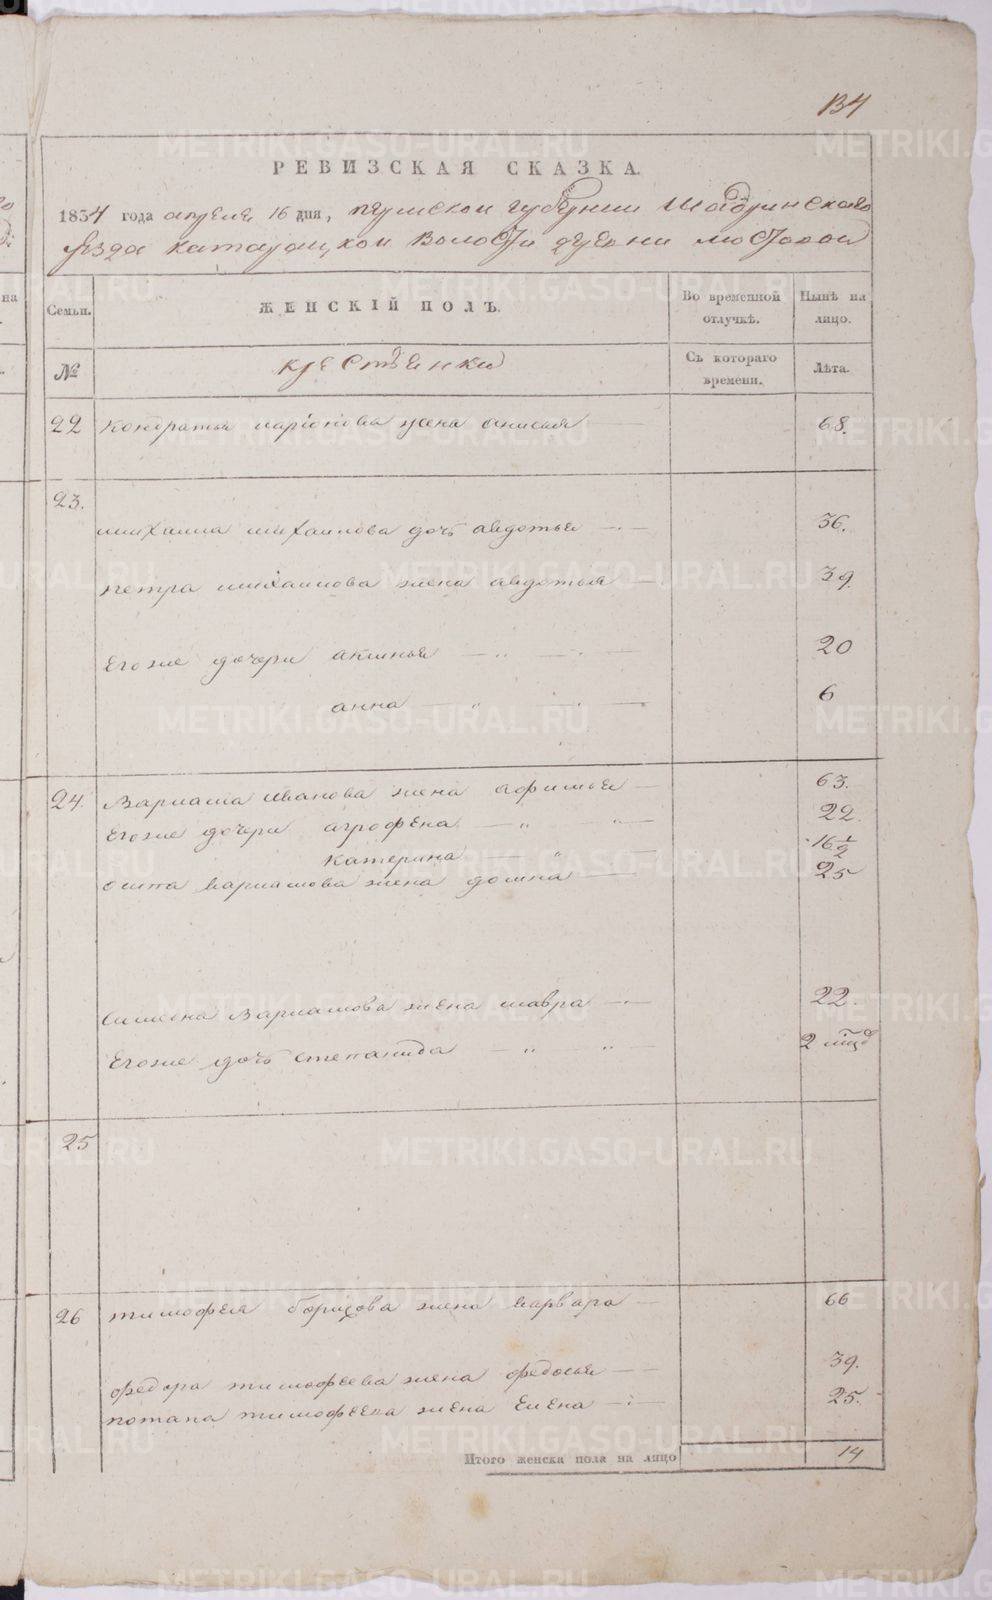 134
РЕВИЗСКАЯ СКАЗКА.
1834 года апреля 16 дня, пермской губернии Шадринскаго
уезда катайцкой Волости деревни мостовой
Семьи. ЖЕНСКІЙ ПОЛЪ. Во временной отлучкѣ. Нынѣ на лицо.
№ крестьянки Съ котораго времени. Лѣта.
22 Кондратья ларіонова жена анисья 68.
23.
михаила михаилова дочь авдотья 36.
петра михаилова жена авдотья 39.
Егоже дочери аксинья 20
анна 6
24. Варлама иванова жена афимья 63.
Егоже дочери агрофена 22.
катерина 16 1/2
осипа варламова жена домна 25
симиона варламова жена мавра 22.
Егоже дочь степанида 2 мцъ
25
26 тимофея борисова жена варвара 66
федора тимофеева жена федосья 39.
потапа тимофеева жена Елена 25.
Итого женска пола на лицо 14
METRIKI.GASO-URAL.RU